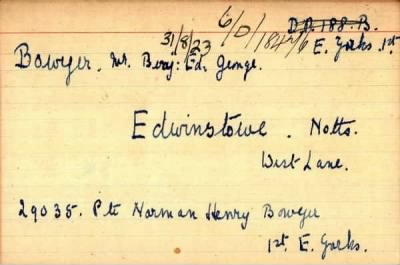 31/8/23 6/D/1842/6 D.A. 188. B.
E. Yorks. 1st.
Bowyer. Mr. Benj: Ed. George.
Edwinstowe. Notts.
West Lane.
29035. Pte Norman Henry Bowyer
1st. E. Yorks.